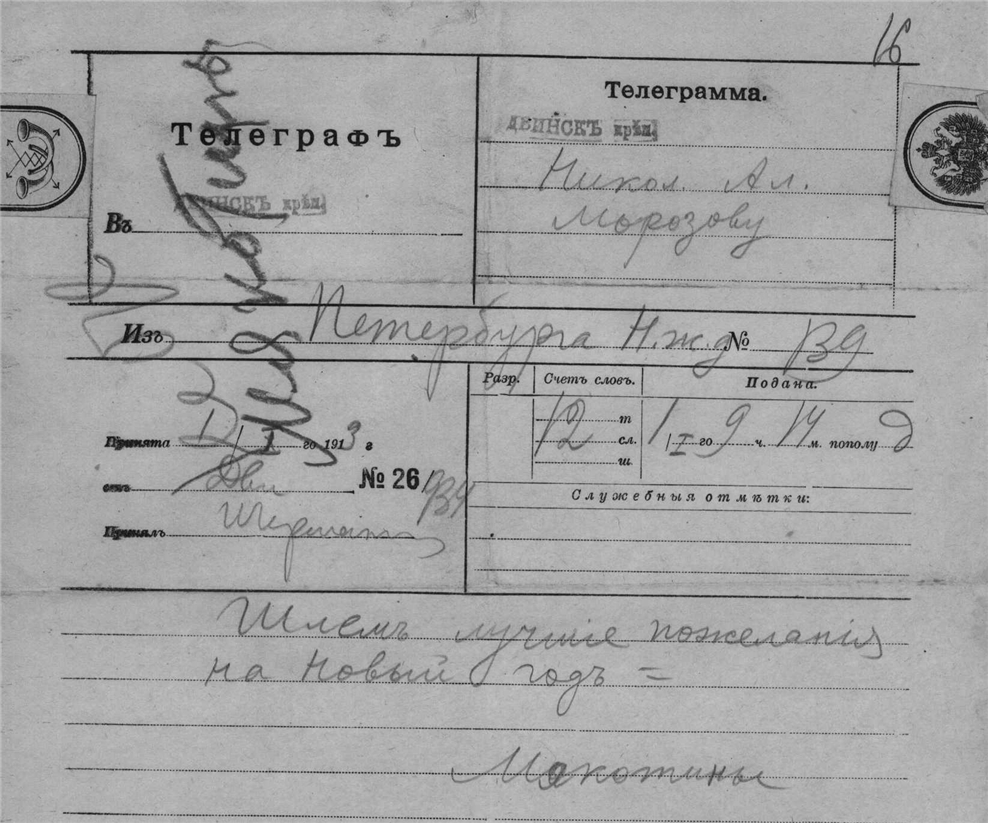 16
Телеграфъ
ДВИНСКЪ крѣп.
Въ
Телеграмма.
ДВИНСКЪ крѣп.
Никол. Ал.
Морозову
Изъ Петербурга Н.ж.д № 139
Принята 1/I го 1913 г
Дви № 26
Принялъ
Разр. Счетъ словъ. Подана.
12 т сл. ш. 1/I го 9 ч. 14 м. пополуд
Служебныя отмѣтки:
Шлемъ лучшіе пожеланія
на Новый годъ =
Мокотины